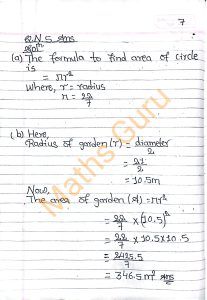 7
Q.N.5 Ans
Solⁿ
(a) The formula to find area of circle
is
= πr²
Where, r = radius
π = 22/7
(b) Here,
Radius of garden (r) = diameter/2
= 21/2
= 10.5m
Now,
The area of garden (A) = πr²
= 22/7 × (10.5)²
= 22/7 × 10.5×10.5
= 2425.5/7
= 346.5m² Ans
Maths Guru